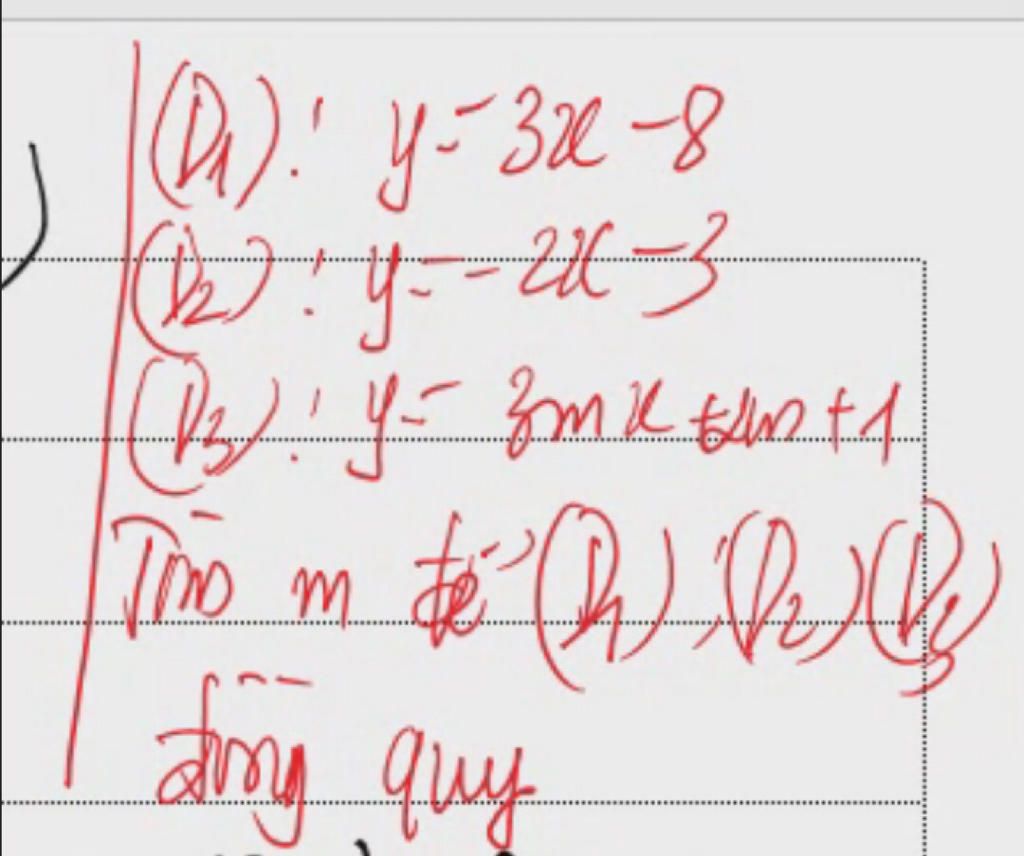 (D1): y = 3x - 8
(D2): y = -2x - 3
(D3): y = 3mx + 2m + 1
Tìm m để (D1), (D2) (D3)
đồng quy